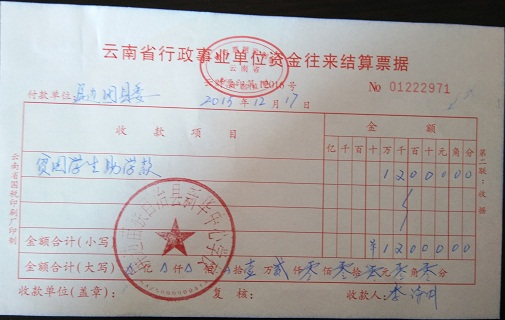 云南省行政事业单位资金往来结算票据
云南省
No 01222971
付款单位 县委
2015年12月17日
收款项目 金额
亿千百十万千百十元角分
贫困学生助学款 12000000
金额合计(小写) ¥12000000
金额合计(大写) 亿 仟 佰 拾壹万贰仟零佰零拾零元零角零分
收款单位(盖章): 复核: 收款人: 李
云南省国税印刷厂印制
第二联:收据
自治县新华中心学校